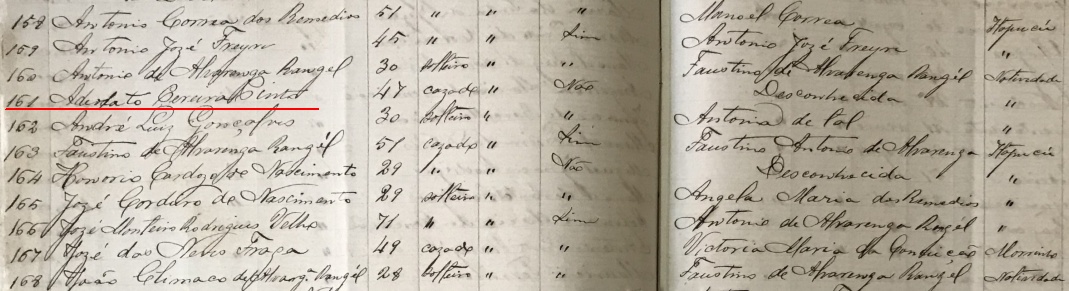 158 Antonio Correa dos Remedios 51 " " " Manoel Correa Itapucú
159 Antonio Jozé Freyre 45 " " Sim Antonio Jozé Freyre "
160 Antonio de Alvarenga Rangél 30 solteiro " " Faustino de Alvarenga Rangél Natividade
161 Pereira Pinto 47 cazado " Não Desconhecida "
162 André Luiz Gonçalves 30 solteiro " " Antonia de "
163 Faustino de Alvarenga Rangél 51 cazado " Sim Faustino Antonio de Alvarenga Itapucú
164 Honorio Cardozo de Nascimento 29 " " Não Desconhecida "
165 Jozé Corduro de Nascimento 29 solteiro " " Angela Maria dos Remedios "
166 Jozé Monteiro Rodrigues Velho 71 " " Sim Antonio de Alvarenga Rangél "
167 Jozé das Neves Fraga 49 cazado " " Victoria Maria da Conceição Morrinho
168 João Climaco de Alvarga Rangél 28 solteiro " " Faustino de Alvarenga Rangél Natividade